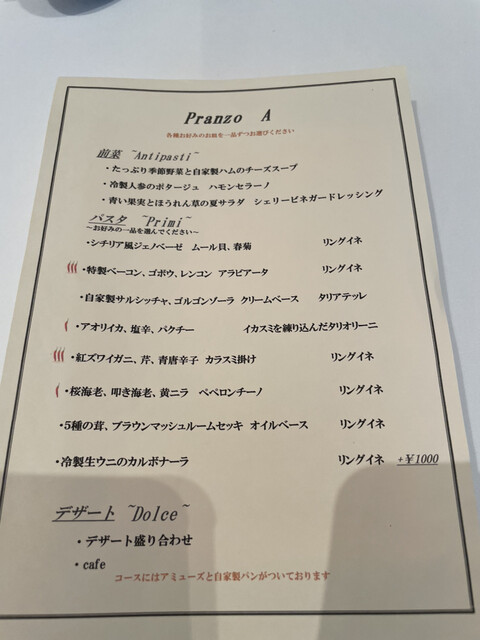 Pranzo A
各種お好みのお皿を一品ずつお選びください
前菜 ~Antipasti~
・たっぷり季節野菜と自家製ハムのチーズスープ
・冷製人参のポタージュ ハモンセラーノ
・青い果実とほうれん草の夏サラダ シェリービネガードレッシング
パスタ ~Primi~
～お好みの一品を選んでください～
・シチリア風ジェノベーゼ ムール貝、春菊 リングイネ
・特製ベーコン、ゴボウ、レンコン アラビアータ リングイネ
・自家製サルシッチャ、ゴルゴンゾーラ クリームベース タリアテッレ
・アオリイカ、塩辛、パクチー イカスミを練り込んだタリオリーニ
・紅ズワイガニ、芹、青唐辛子 カラスミ掛け リングイネ
・桜海老、叩き海老、黄ニラ ペペロンチーノ リングイネ
・5種の茸、ブラウンマッシュルームセッキ オイルベース リングイネ
・冷製生ウニのカルボナーラ リングイネ +¥1000
デザート ~Dolce~
・デザート盛り合わせ
・cafe
コースにはアミューズと自家製パンがついております